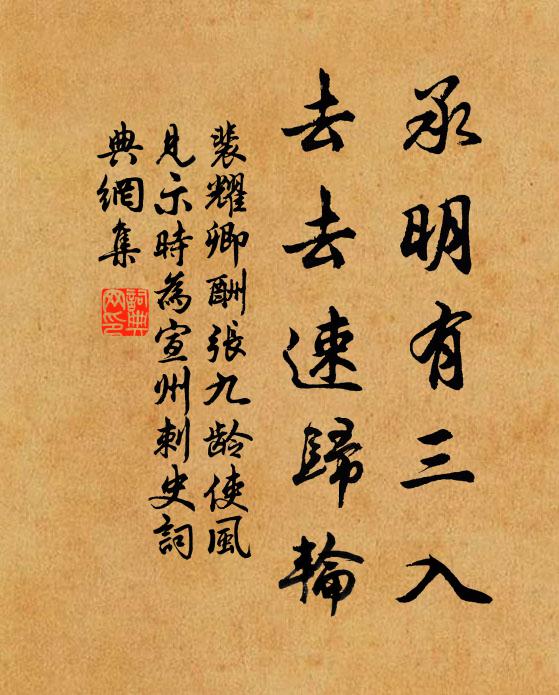 承明有三入
去去速歸輪
裴耀卿酬张九龄使風
見示時為宣州刺史詞
典網集
詞典网印